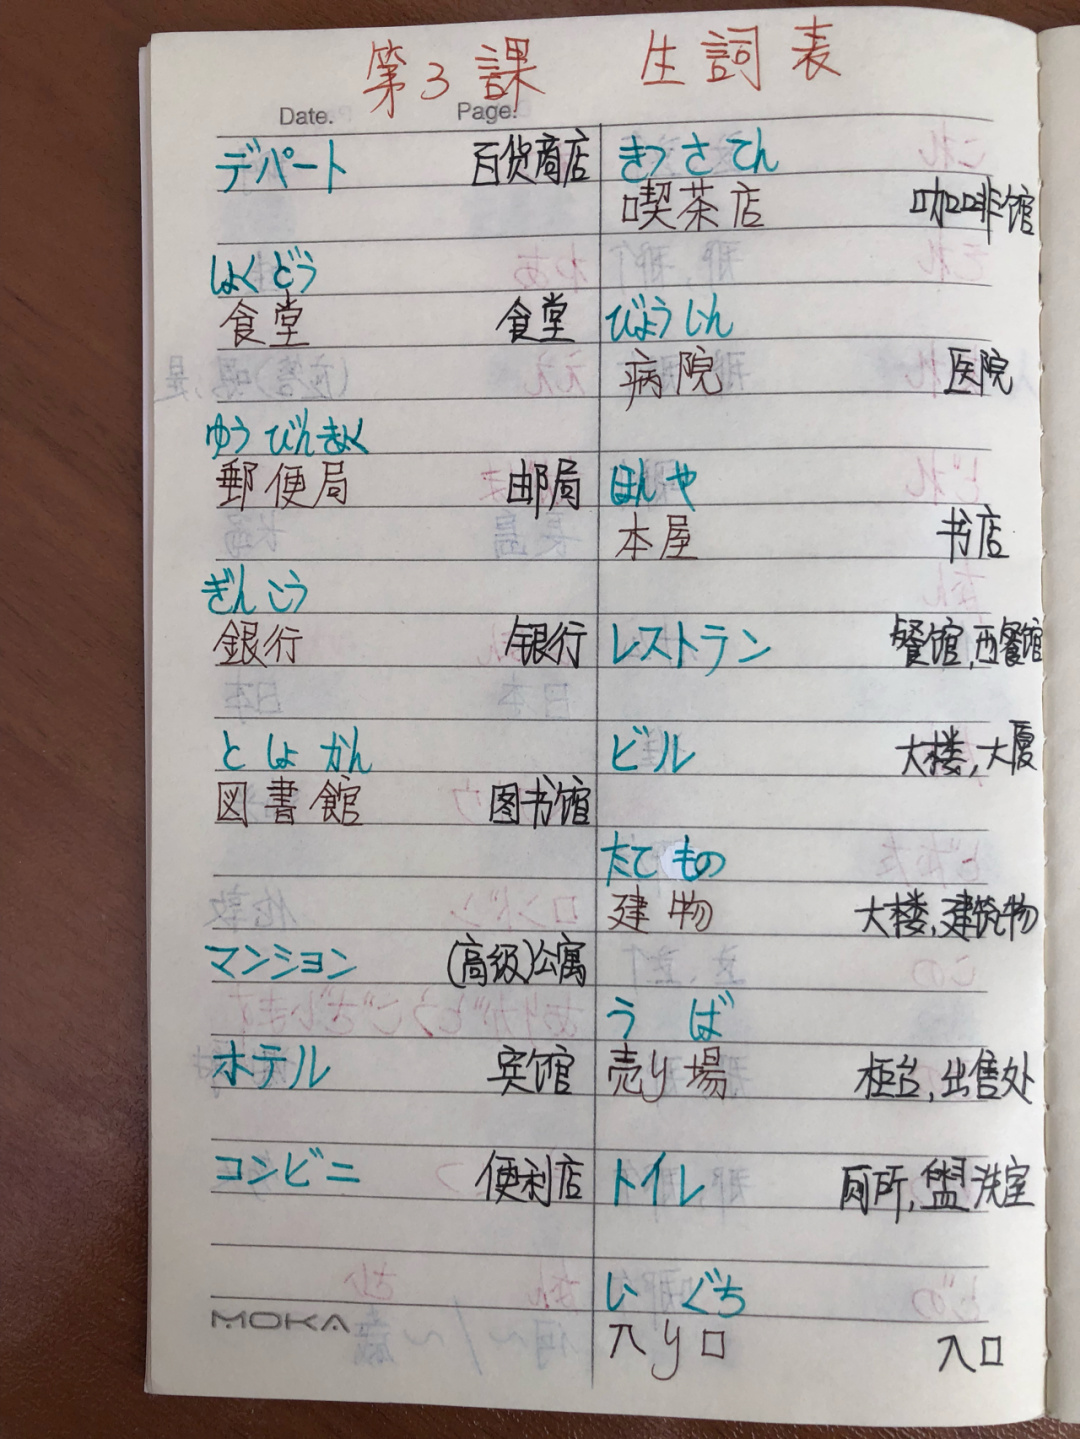 第3課 生詞表
Date. Page:
デパート 百货商店
しょくどう
食堂 食堂
ゆうびんきょく
郵便局 邮局
ぎんこう
銀行 银行
としょかん
図書館 图书馆
マンション (高级)公寓
ホテル 宾馆
コンビニ 便利店
MOKA
きっさてん
喫茶店 咖啡馆
びょういん
病院 医院
ほんや
本屋 书店
レストラン 餐馆,西餐馆
ビル 大楼,大厦
たてもの
建物 大楼,建筑物
う ば
売り場 柜台,出售处
トイレ 厕所,盥洗室
い ぐち
入り口 入口